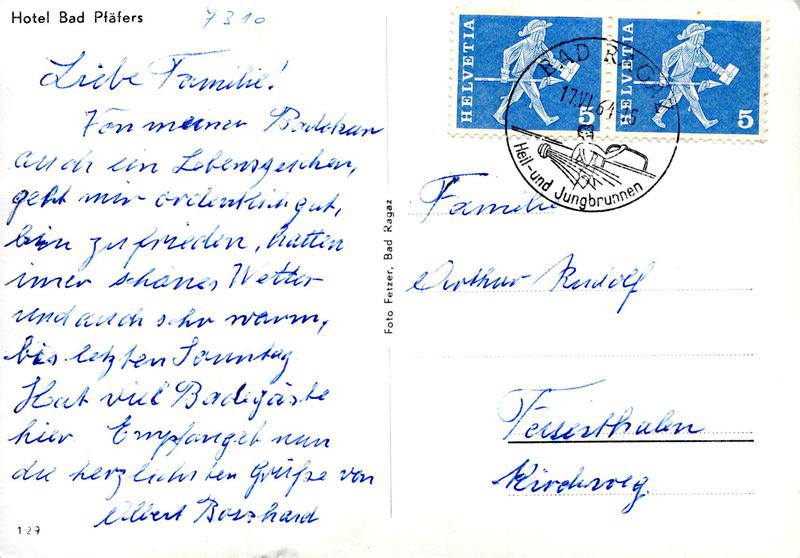 Hotel Bad Pfäfers
7310
Liebe Familie!
Von meiner Badekur
auch ein Lebenszeichen,
geht mir ordentlich gut,
bin zufrieden, hatten
imer schönes Wetter
und auch sehr warm,
bis letzten Sonntag
Hat viel Badegäste
hier Empfanget nun
die herzlichsten Grüße von
Albert Bosshard
129
Foto Fetzer, Bad Ragaz
HELVETIA 5
HELVETIA 5
BAD RAGAZ
17.VI.64
Heil- und Jungbrunnen
Familie
Arthur Rudolf
Feuerthalen
Kirchweg